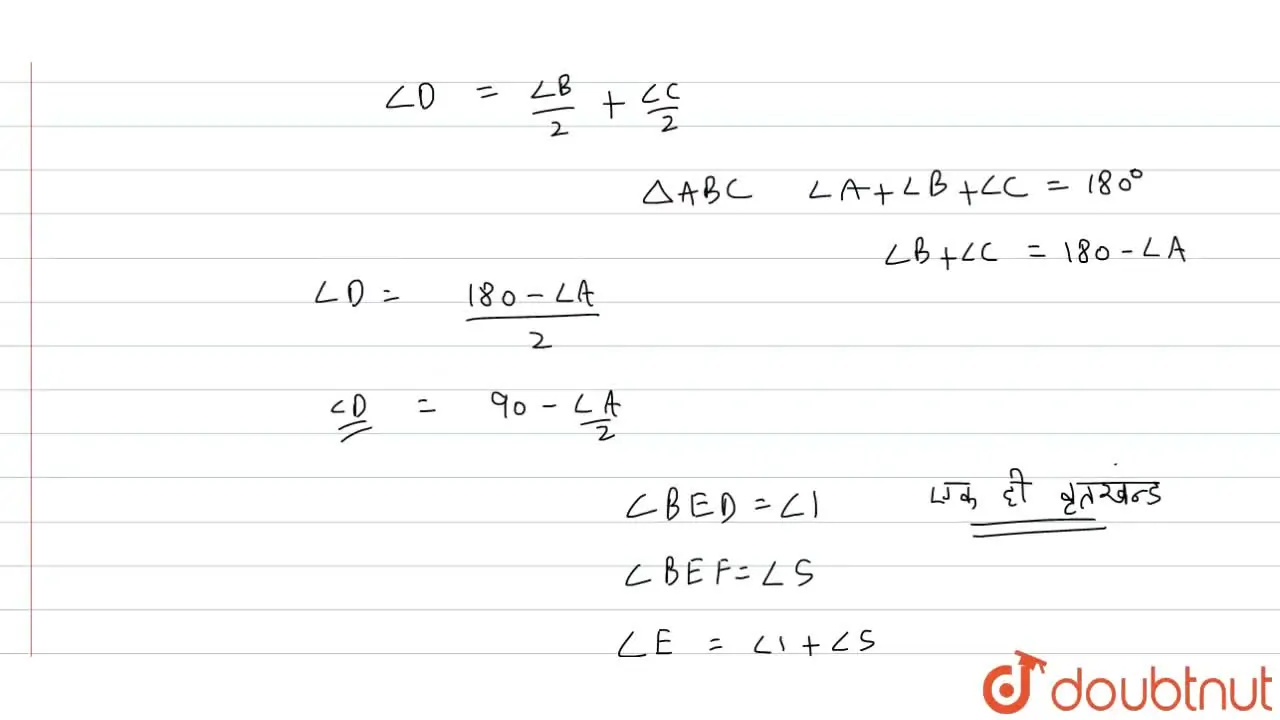 ∠D = ∠B/2 + ∠C/2
△ABC ∠A+∠B+∠C = 180°
∠B+∠C = 180-∠A
∠D = 180-∠A/2
∠D = 90 - ∠A/2
∠BED = ∠1 एक ही वृतखन्ड
∠BEF = ∠5
∠E = ∠1 + ∠5
doubtnut